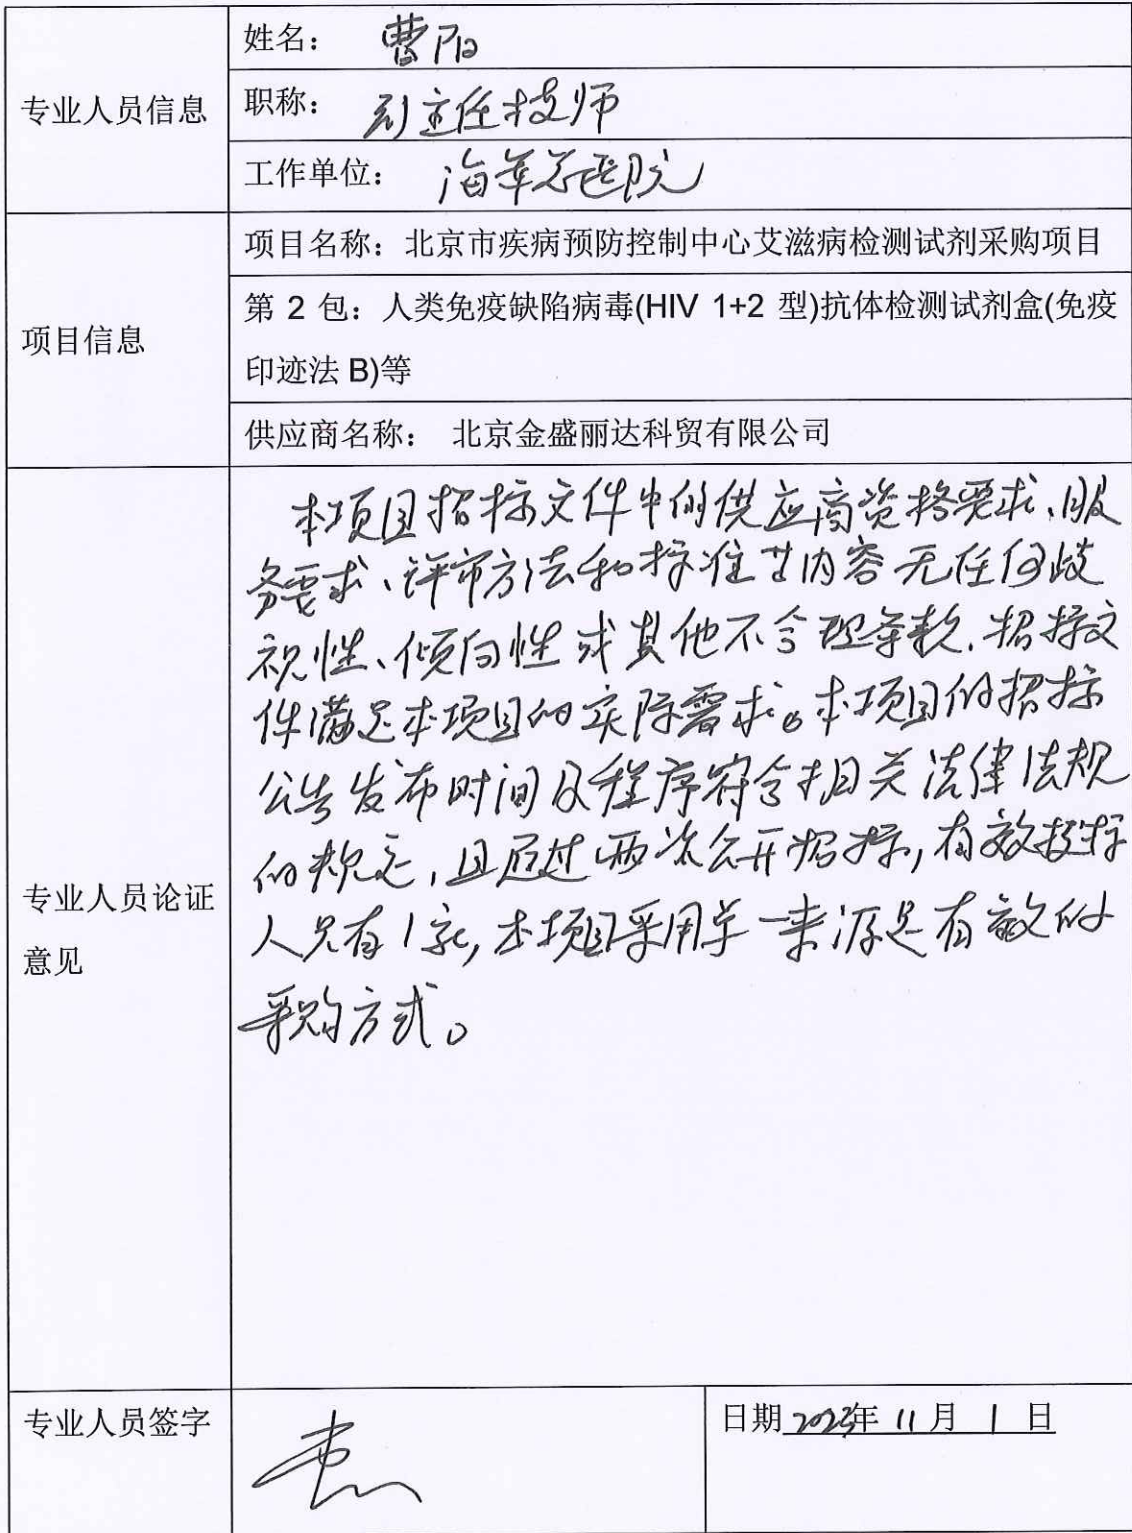 专业人员信息
姓名： 曹阳
职称： 副主任技师
工作单位： 海军总医院
项目信息
项目名称：北京市疾病预防控制中心艾滋病检测试剂采购项目
第 2 包：人类免疫缺陷病毒(HIV 1+2 型)抗体检测试剂盒(免疫
印迹法 B)等
供应商名称： 北京金盛丽达科贸有限公司
专业人员论证
意见
本项目招标文件中的供应商资格要求、服
务要求、评审方法和标准等内容无任何歧
视性、倾向性或其他不合理条款.招标文
件满足本项目的实际需求。本项目的招标
公告发布时间及程序符合相关法律法规
的规定,且经过两次公开招标,有效投标
人只有1家,本项目采用单一来源是有效的
采购方式。
专业人员签字
日期 2023年 11 月 1 日